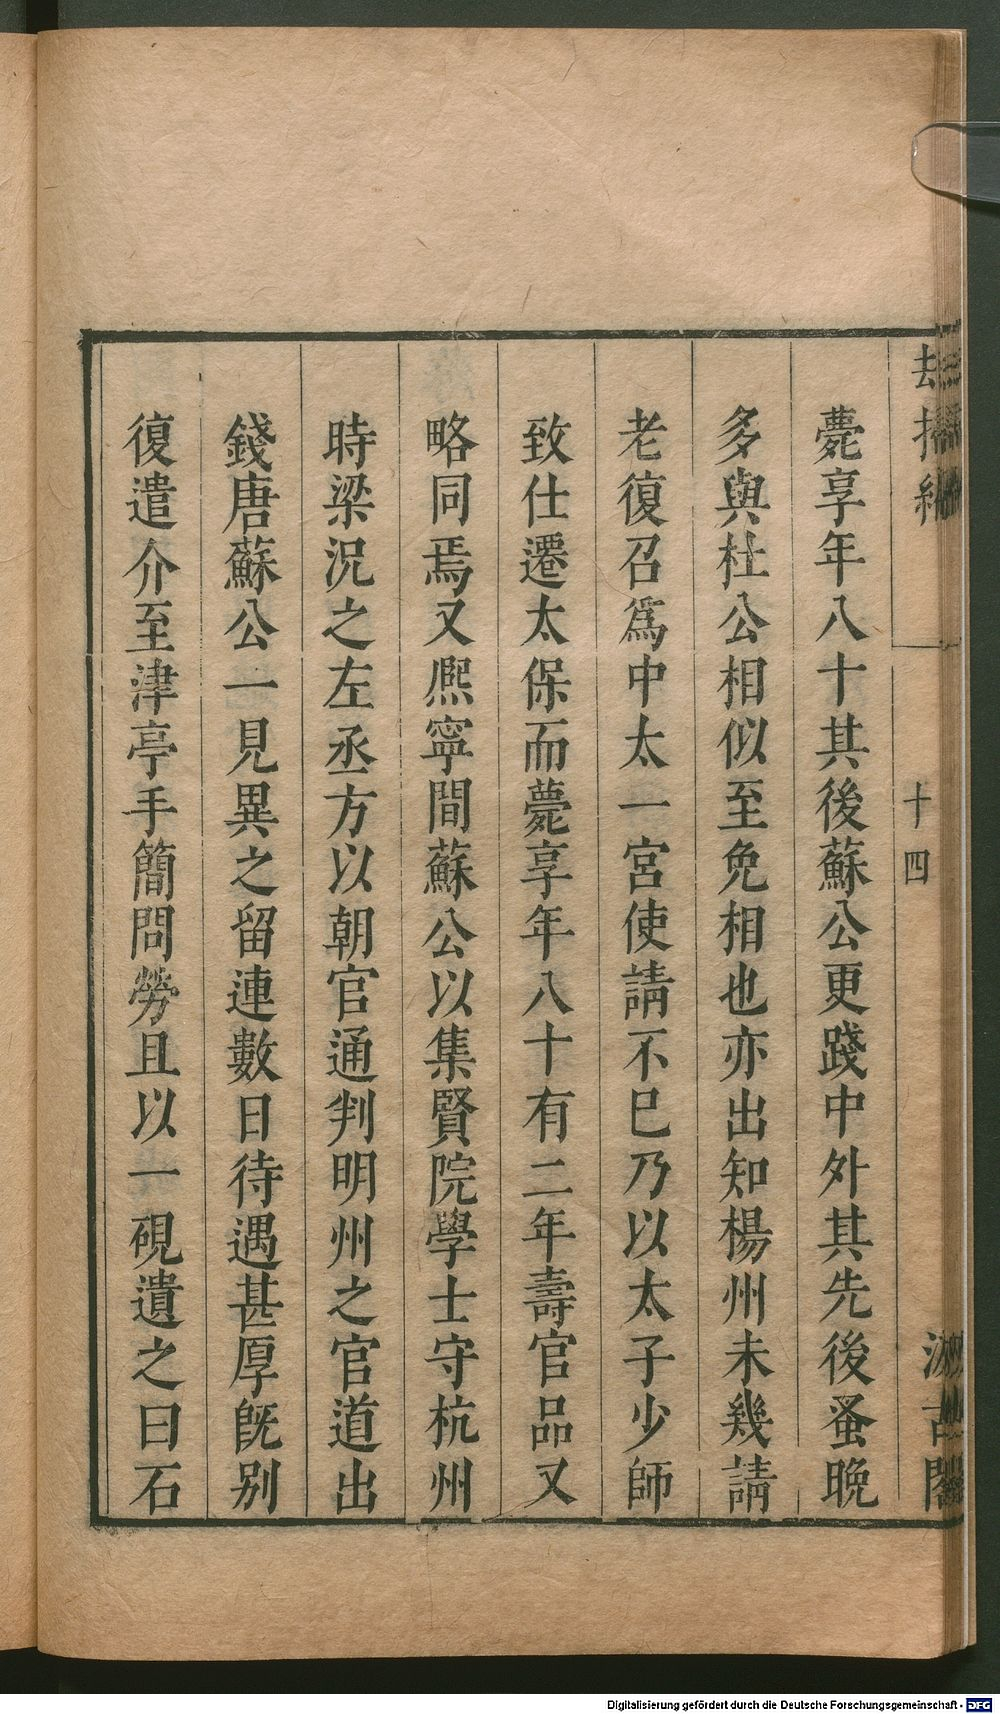 薨享年八十其後蘇公更踐中外其先後蚤晚
多與杜公相似至免相也亦出知楊州未幾請
老復召爲中太一宮使請不已乃以太子少師
致仕遷太保而薨享年八十有二年壽官品又
略同焉又熈寧間蘇公以集賢院學士守杭州
時梁況之左丞方以朝官通判明州之官道出
錢唐蘇公一見異之留連數日待遇甚厚旣别
復遣介至津亭手簡問勞且以一硯遺之曰石
十四
Digitalisierung gefördert durch die Deutsche Forschungsgemeinschaft - DFG